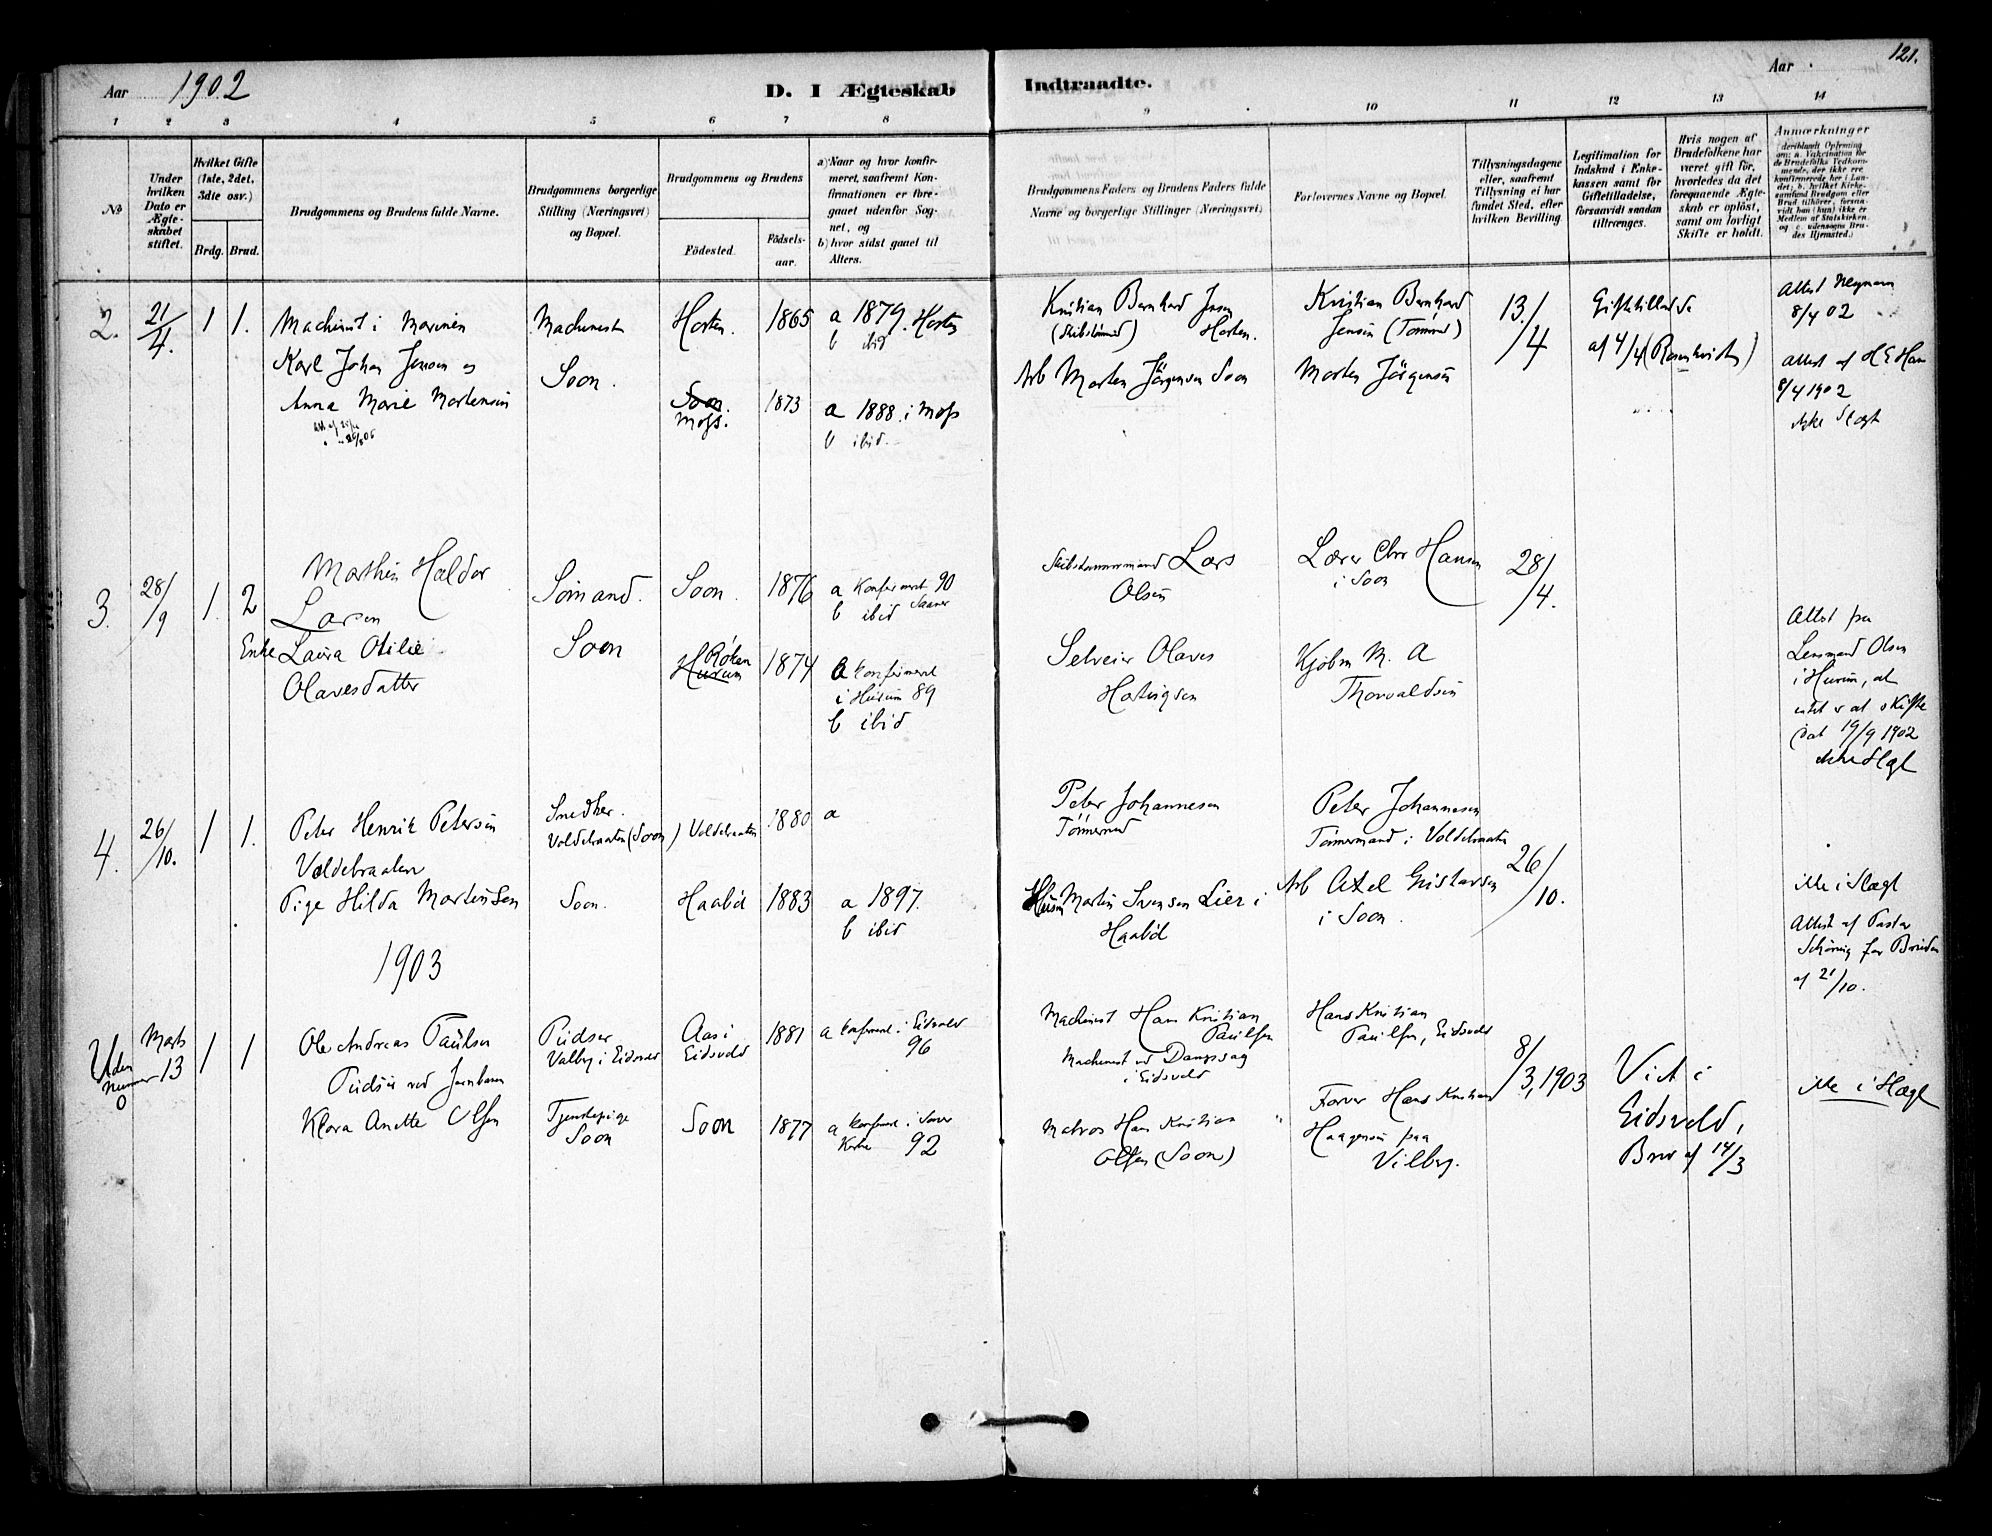 121.
Aar 1902
D. I Ægteskab Indtraadte.
Aar
1 2 3 4 5 6 7 8 9 10 11 12 13 14
No
Under hvilken Dato er Ægteskabet stiftet.
Hvilket Gifte (1ste, 2det, 3die osv.)
Brdg. Brud.
Brudgommens og Brudens fulde Navne.
Brudgommens borgerlige Stilling (Næringsvei) og Bopæl.
Brudgommens og Brudens
Födested.
Födselsaar.
a) Naar og hvor konfirmeret, saafremt Konfirmationen er foregaaet udenfor Sognet, og
b) hvor sidst gaaet til Alters.
Brudgommens Faders og Brudens Faders fulde Navne og borgerlige Stillinger (Næringsvei)
Forlovernes Navne og Bopæl.
Tillysningsdagene eller, saafremt Tillysning ei har fundet Sted, efter hvilken Bevilling.
Legitimation for Indskud i Enkekassen samt for Giftetilladelse, forsaavidt saadan tiltrænges.
Hvis nogen af Brudefolkene har været gift før, hvorledes da det foregaaende Ægteskab er opløst, samt om lovligt Skifte er holdt.
Anmærkninger (deriblandt Opførning om: a. Vakcination for de Brudefolks Vedkommende, der ikke ere konfirmerede her i Landet; b. hvilket Kirkesamfund Brudgom eller Brud tilhører, forsaavidt han (hun) ikke er Medlem af Statskirken, og c. udensogns Brudes Hjemsted.)
2. 21/4. 1 1.
Machinist i Marinen
Karl Johan Jensen og
Anna Marie Mortensen
Machinist
Soon.
Horten. 1865 a 1879. Horten
b ibid
Soon.
Moss. 1873 a 1888. i Moss
b ibid.
Kristian Bernhard Jensen
(Skibstömmd) Horten.
Arb Morten Jörgensen Soon
Kristian Bernhard
Jensen (Tömmd)
Morten Jörgensen
13./4
Giftetillade
af 4/4
8/4 02
Attest af H E
8/4 1902
ikke Slægt
3. 28/9 1. 2
Marthin Haldor
Larsen
Enke Laura Otilie
Olavesdatter
Sömand.
Soon
Soon. 1876 a Konfirmert 90
Saaner
b ibid
Röken
Hurum 1874 a konfirmert
i Hurum 89
b ibid
Skibstømmermand Lars
Olsen
Olaves
Lærer Chr Hansen
i Soon
Kjöbm M. A
Thorvaldsen
28/4.
Attest fra
Lensmand Olsen
i Hurum, at
intet er at skifte
dat 19/9 1902
ikke Slægt
4. 26/10. 1 1.
Peter Henrik Petersen
Voldebraaten
Pige Hilda Martinsen
Snedker.
Voldebraaten (Soon)
Soon.
Voldebraaten 1880 a
Haaböl 1883 a 1897.
b ibid
Peter Johannesen
Tömmermd
Husm Martin Svensen Lier i
Haaböl
Peter Johannesen
Tömermand i Voldebraaten
Arb Axel Gustavsen
i Soon.
26/10.
ikke i Slægt
Attest af Pastor
Schöning for Bruden
af 21/10.
1903
Uden
Nummer
0
Marts
13 1 1
Ole Andreas Paulsen
Pudser ved Jernbanen
Klara Anette Olsen
Pudser
Valby i Eidsvold
Tjenestepige
Soon
Aas i
Eidsvold 1881 a konfirmert i Eidsvold
96
Soon 1877 a konfirmert i Soner
Kirke 92
Machinist Hans Kristian
Paulsen
Machinist ved Dampsag
i Eidsvold
Matros Hans Kristian
Olsen (Soon)
Hans Kristian
Paulsen, Eidsvold
Farver Hans Kristian
Haagensen paa
Vilberg.
8/3, 1903
Viet i
Eidsvold,
Brev af 14/3
ikke i Slægt